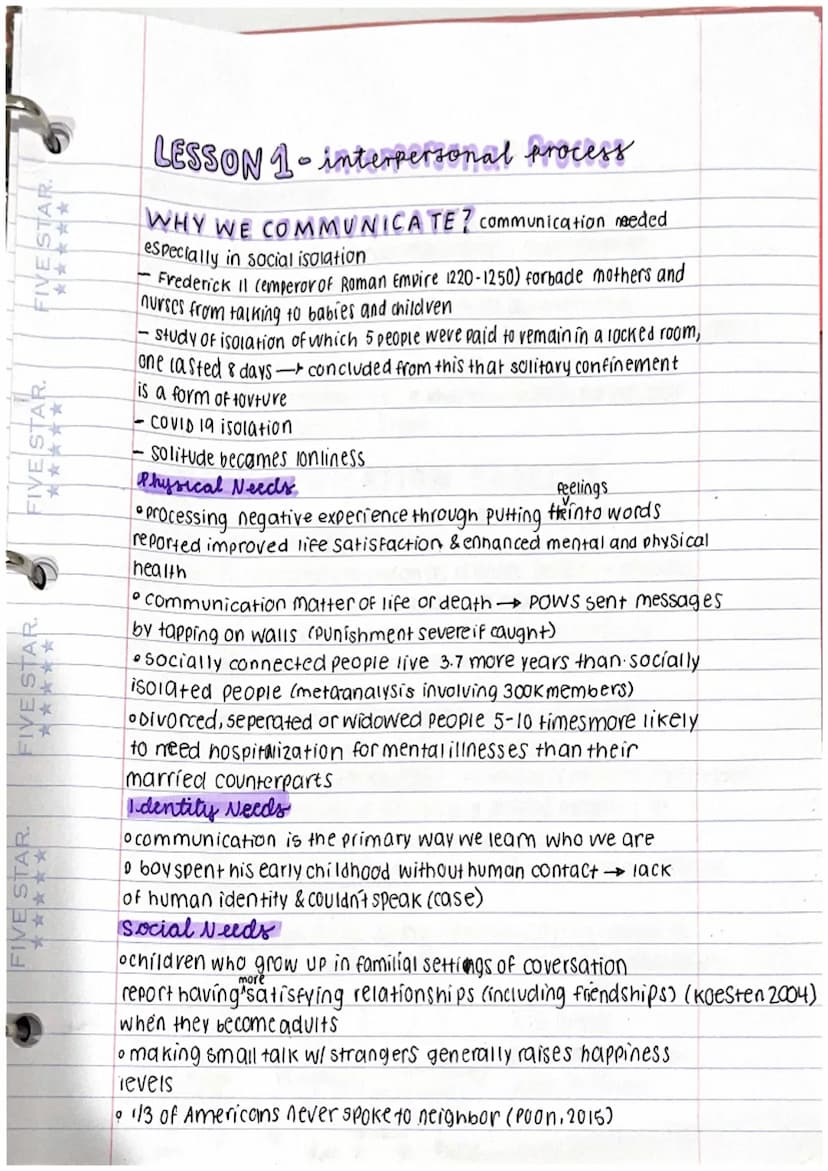 LESSON 1 - interpersonal process
WHY WE COMMUNICATE? communication needed
especially in social isolation
- Frederick II (emperor of Roman Empire 1220-1250) forbade mothers and
nurses from talking to babies and children
- study of isolation of which 5 people were paid to remain in a locked room,
one lasted 8 days → concluded from this that solitary confinement
is a form of torture
- COVID 19 isolation
- solitude becomes lonliness
Physical Needs
feelings
• processing negative experience through putting into words
reported improved life satisfaction & enhanced mental and physical
health
• communication matter of life or death → POWS sent messages
by tapping on walls (punishment severe if caught)
• socially connected people live 3.7 more years than socially
isolated people (metaanalysis involving 300K members)
• Divorced, seperated or widowed people 5-10 times more likely
to need hospitalization for mental illnesses than their
married counterparts
Identity Needs
• communication is the primary way we learn who we are
• boy spent his early childhood without human contact → lack
of human identity & couldn't speak (case)
Social Needs
• children who grow up in familial settings of coversation
more
report having ^ satisfying relationships (including friendships) (Koesten 2004)
when they become adults
• making small talk w/ strangers generally raises happiness
levels
• 1/3 of Americans never spoke to neighbor (Poon, 2015)
FIVE STAR.
FIVE STAR.
FIVE STAR.
FIVE STAR.